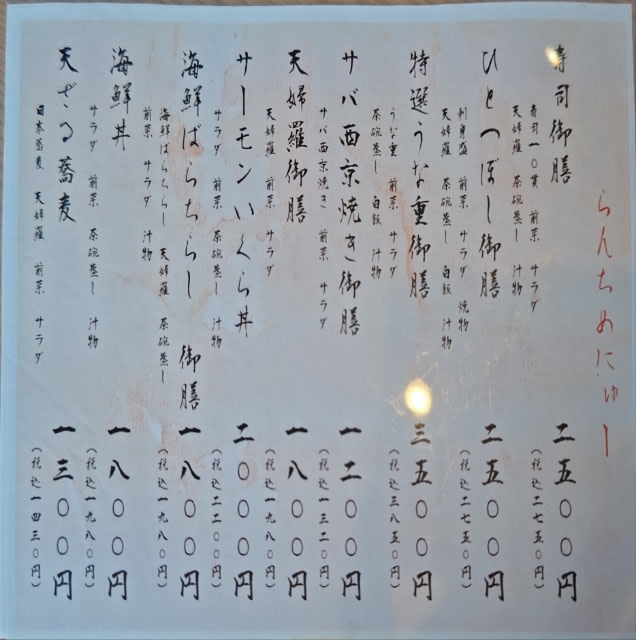 らんちめにゅー
寿司御膳 二五〇〇円
寿司一〇貫 前菜 サラダ
天婦羅 茶碗蒸し 汁物
(税込二七五〇円)
ひとつぼし御膳 二五〇〇円
刺身盛 前菜 サラダ 焼物
天婦羅 茶碗蒸し 白飯 汁物
(税込二七五〇円)
特選うな重御膳 三五〇〇円
うな重 前菜 サラダ
茶碗蒸し 白飯 汁物
(税込三八五〇円)
サバ西京焼き御膳 一二〇〇円
サバ西京焼き 前菜 サラダ
(税込一三二〇円)
天婦羅御膳 一八〇〇円
天婦羅 前菜 サラダ
(税込一九八〇円)
サーモンいくら丼 二〇〇〇円
サラダ 前菜 茶碗蒸し 汁物
(税込二二〇〇円)
海鮮ばらちらし 御膳 一八〇〇円
海鮮ばらちらし 天婦羅 茶碗蒸し
前菜 サラダ 汁物
(税込一九八〇円)
海鮮丼 一八〇〇円
サラダ 前菜 茶碗蒸し 汁物
(税込一九八〇円)
天ざる蕎麦 一三〇〇円
日本蕎麦 天婦羅 前菜 サラダ
(税込一四三〇円)